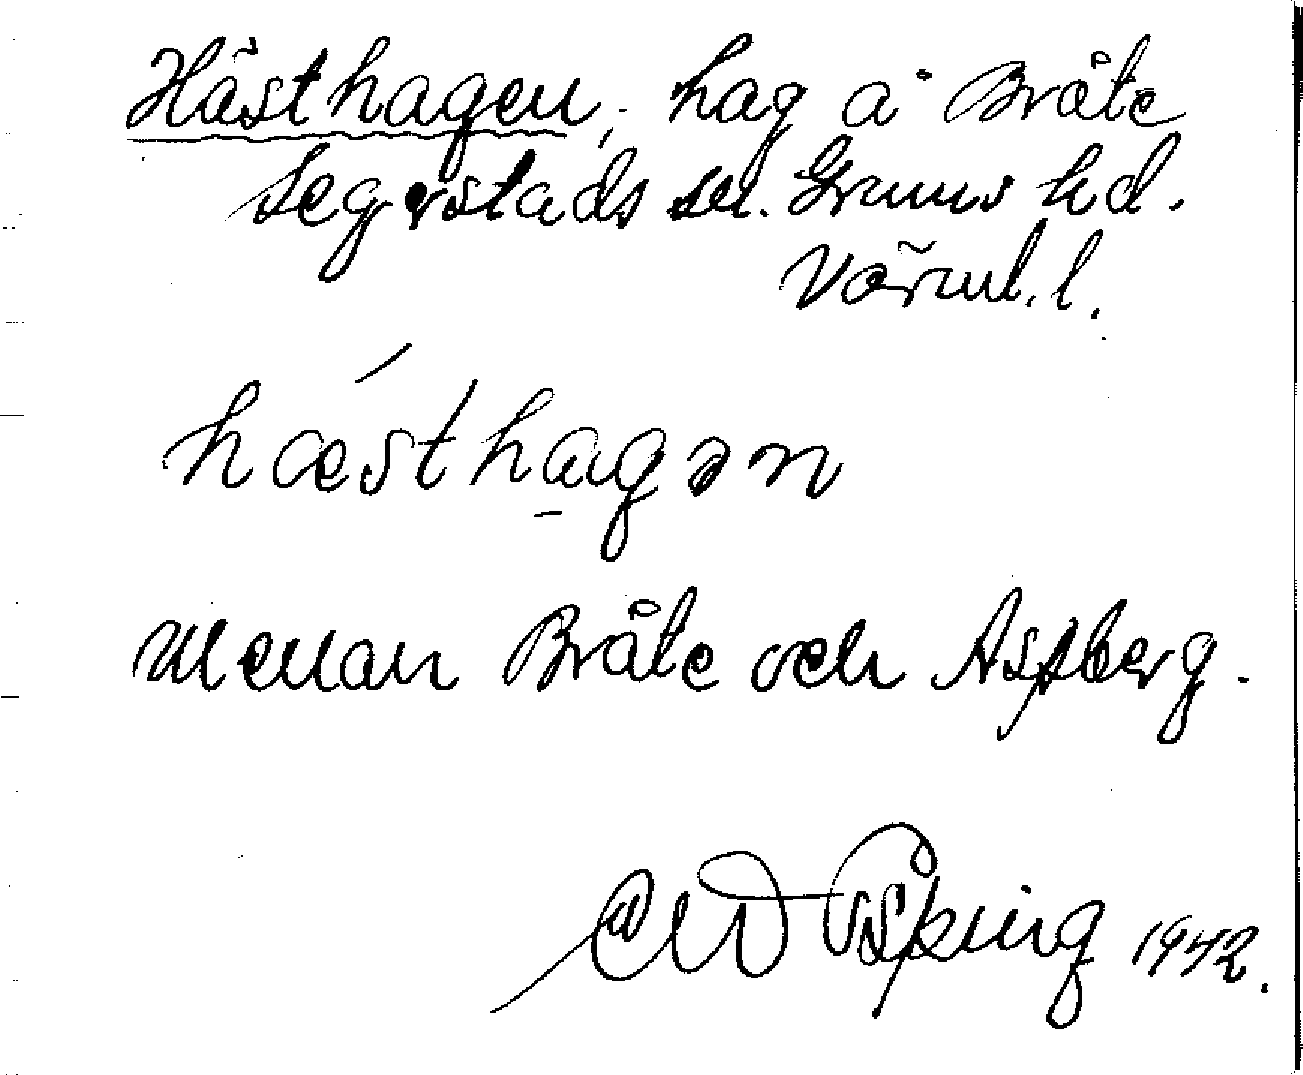 Hästhagen, hag å Bråte
Segerstads sn. Grums hd.
Värml. l.
hæsthagən
Mellan Bråte och Aspberg.
1942.